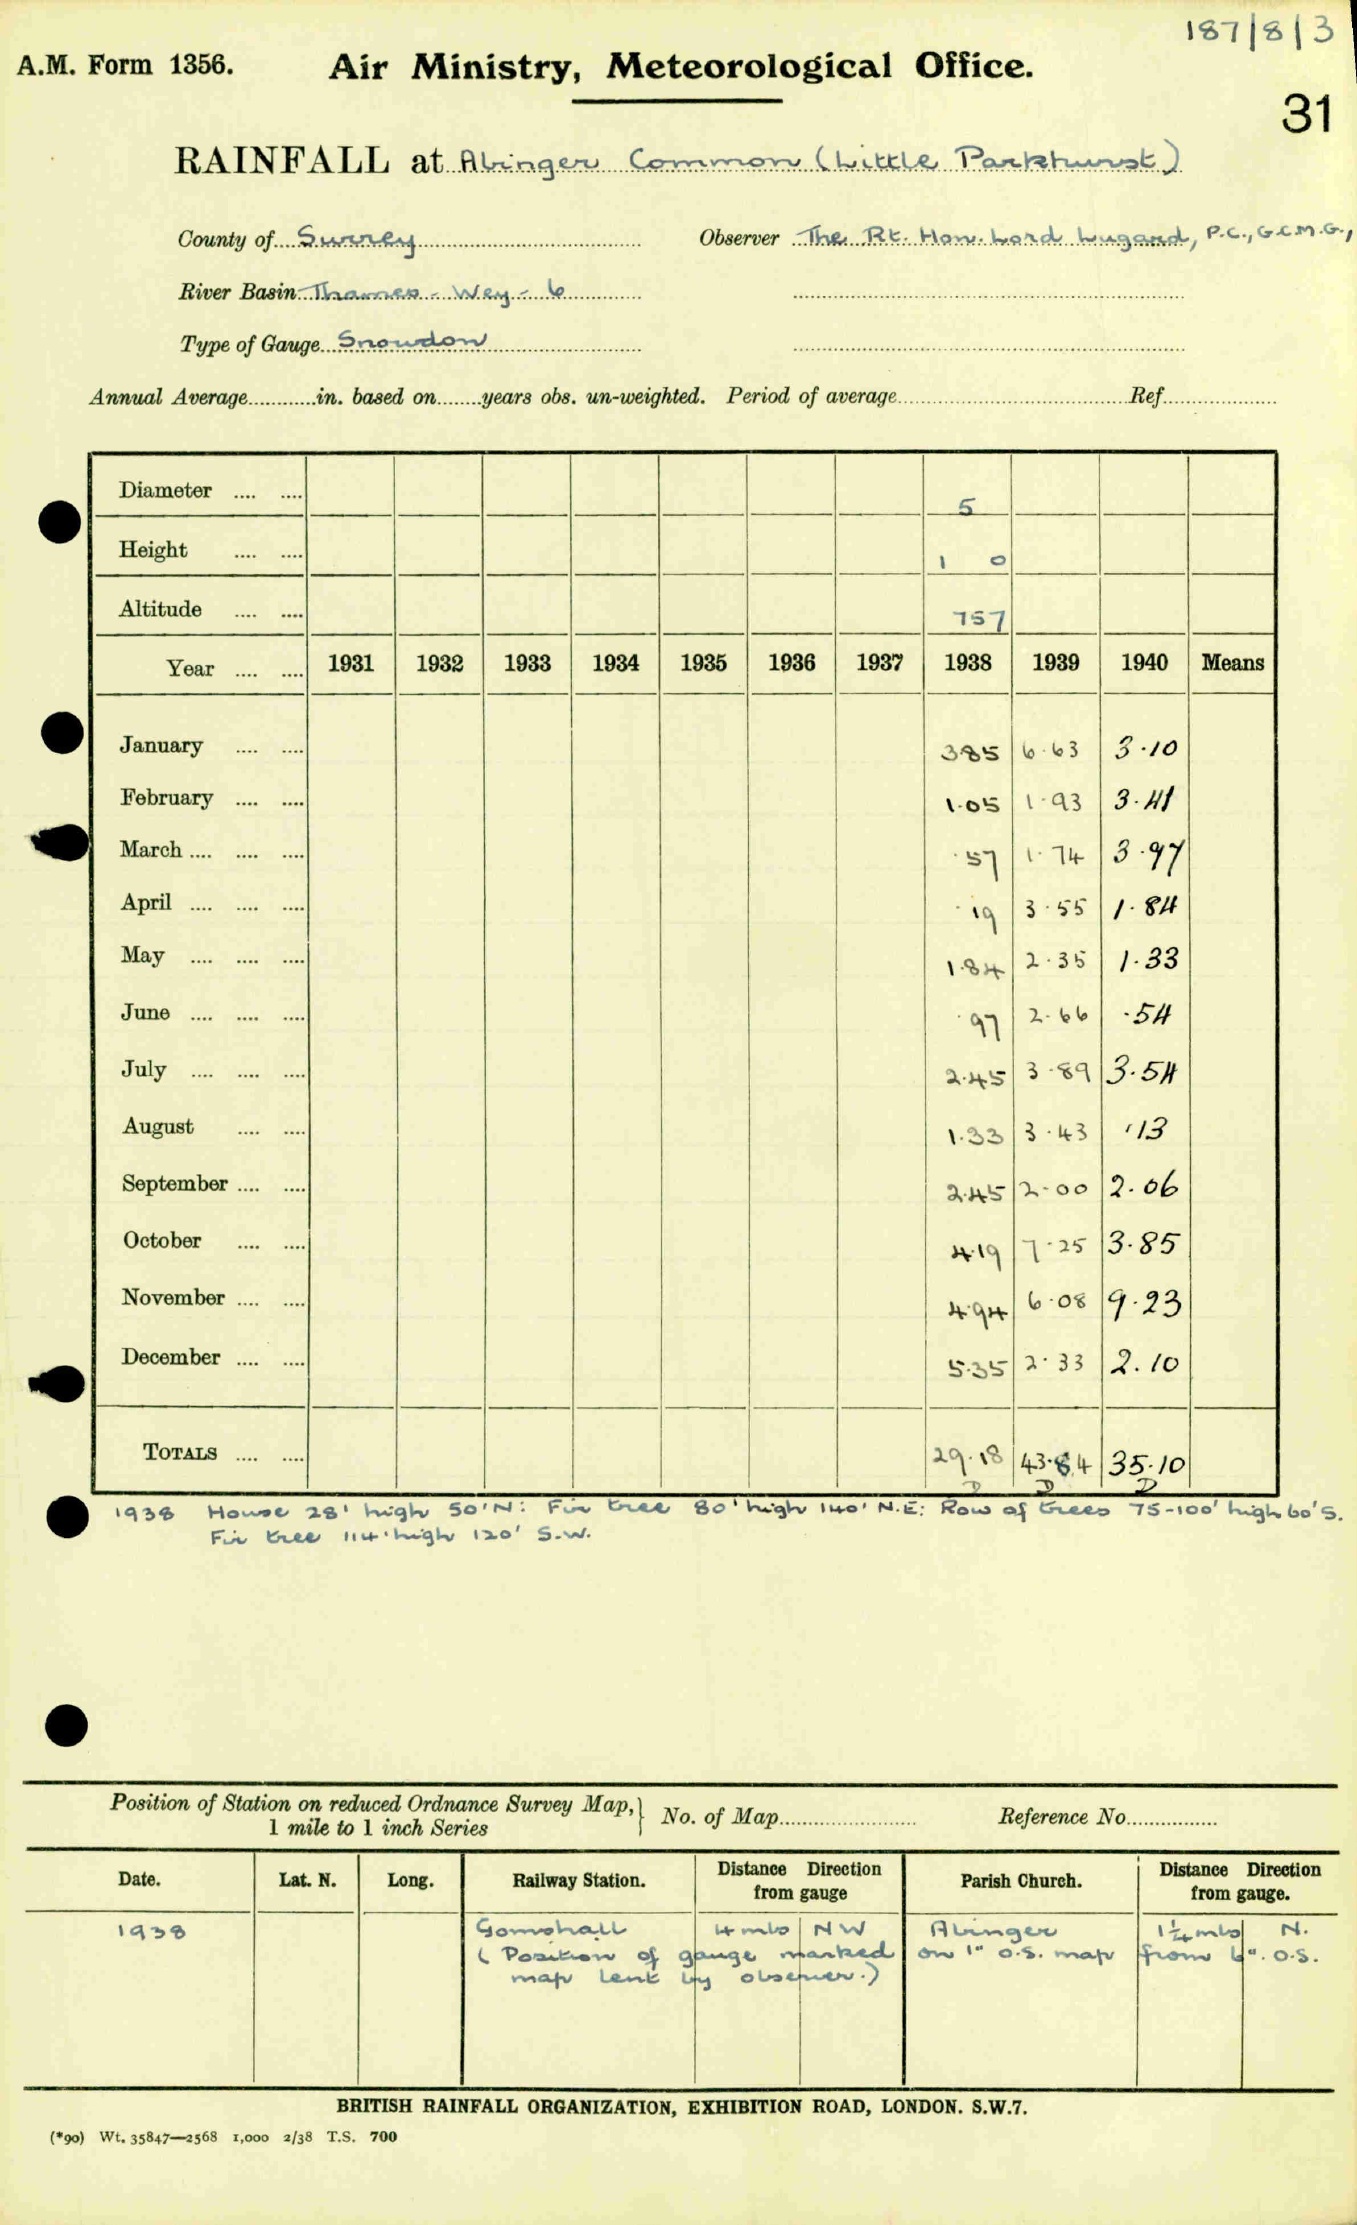 187/8/3
A.M. Form 1356. Air Ministry, Meteorological Office.
31
RAINFALL at Abinger Common (Little Parkhurst)
County of Surrey Observer The Rt. Hon. Lord Lugard, P.C., G.C.M.G.,
River Basin Thames - Wey - 6
Type of Gauge Snowdon
Annual Average............in. based on........years obs. un-weighted. Period of average................................Ref....................
Diameter .... .... 5
Height .... .... 1 0
Altitude .... .... 757
Year .... .... 1931 1932 1933 1934 1935 1936 1937 1938 1939 1940 Means
January .... .... 3.85 6.63 3.10
February .... .... 1.05 1.93 3.41
March .... .... .... .57 1.74 3.97
April .... .... .... .19 3.55 1.84
May .... .... .... 1.84 2.35 1.33
June .... .... .... .97 2.66 .54
July .... .... .... 2.45 3.89 3.54
August .... .... 1.33 3.43 .13
September .... .... 2.45 2.00 2.06
October .... .... 4.19 7.25 3.85
November .... .... 4.94 6.08 9.23
December .... .... 5.35 2.33 2.10
TOTALS .... .... 29.18 43.84 35.10
D D D
1938 House 28' high 50' N: Fir tree 80' high 140' N.E: Row of trees 75-100' high 60' S.
Fir tree 114' high 120' S.W.
Position of Station on reduced Ordnance Survey Map, } No. of Map........................ Reference No.................
1 mile to 1 inch Series
Date. Lat. N. Long. Railway Station. Distance Direction from gauge Parish Church. Distance Direction from gauge.
1938 Gomshall 4 mls NW Abinger 1¼ mls N.
(Position of gauge marked on 1" O.S. map from 6" O.S.
map lent by observer.)
BRITISH RAINFALL ORGANIZATION, EXHIBITION ROAD, LONDON. S.W.7.
(*90) Wt. 35847—2568 1,000 2/38 T.S. 700